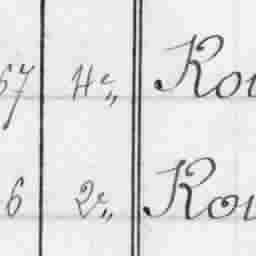 67 4e,, Rou
6 2e,, Rou